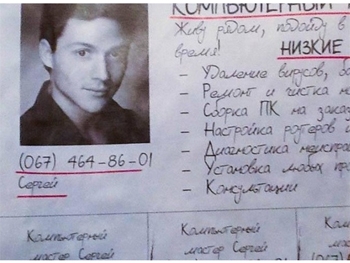 КОМПЬЮТЕРНЫЙ
Живу рядом, подойду в
время! НИЗКИЕ
- Удаление вирусов,
- Ремонт и чистка
- Сборка ПК на заказ
- Настройка роутеров и
- Диагностика
- Установка любых
- Консультации
(067) 464-86-01
Сергей
Компьютерный
мастер Сергей
Компьютерный
мастер Сергей
Компьютерный
мастер Сергей